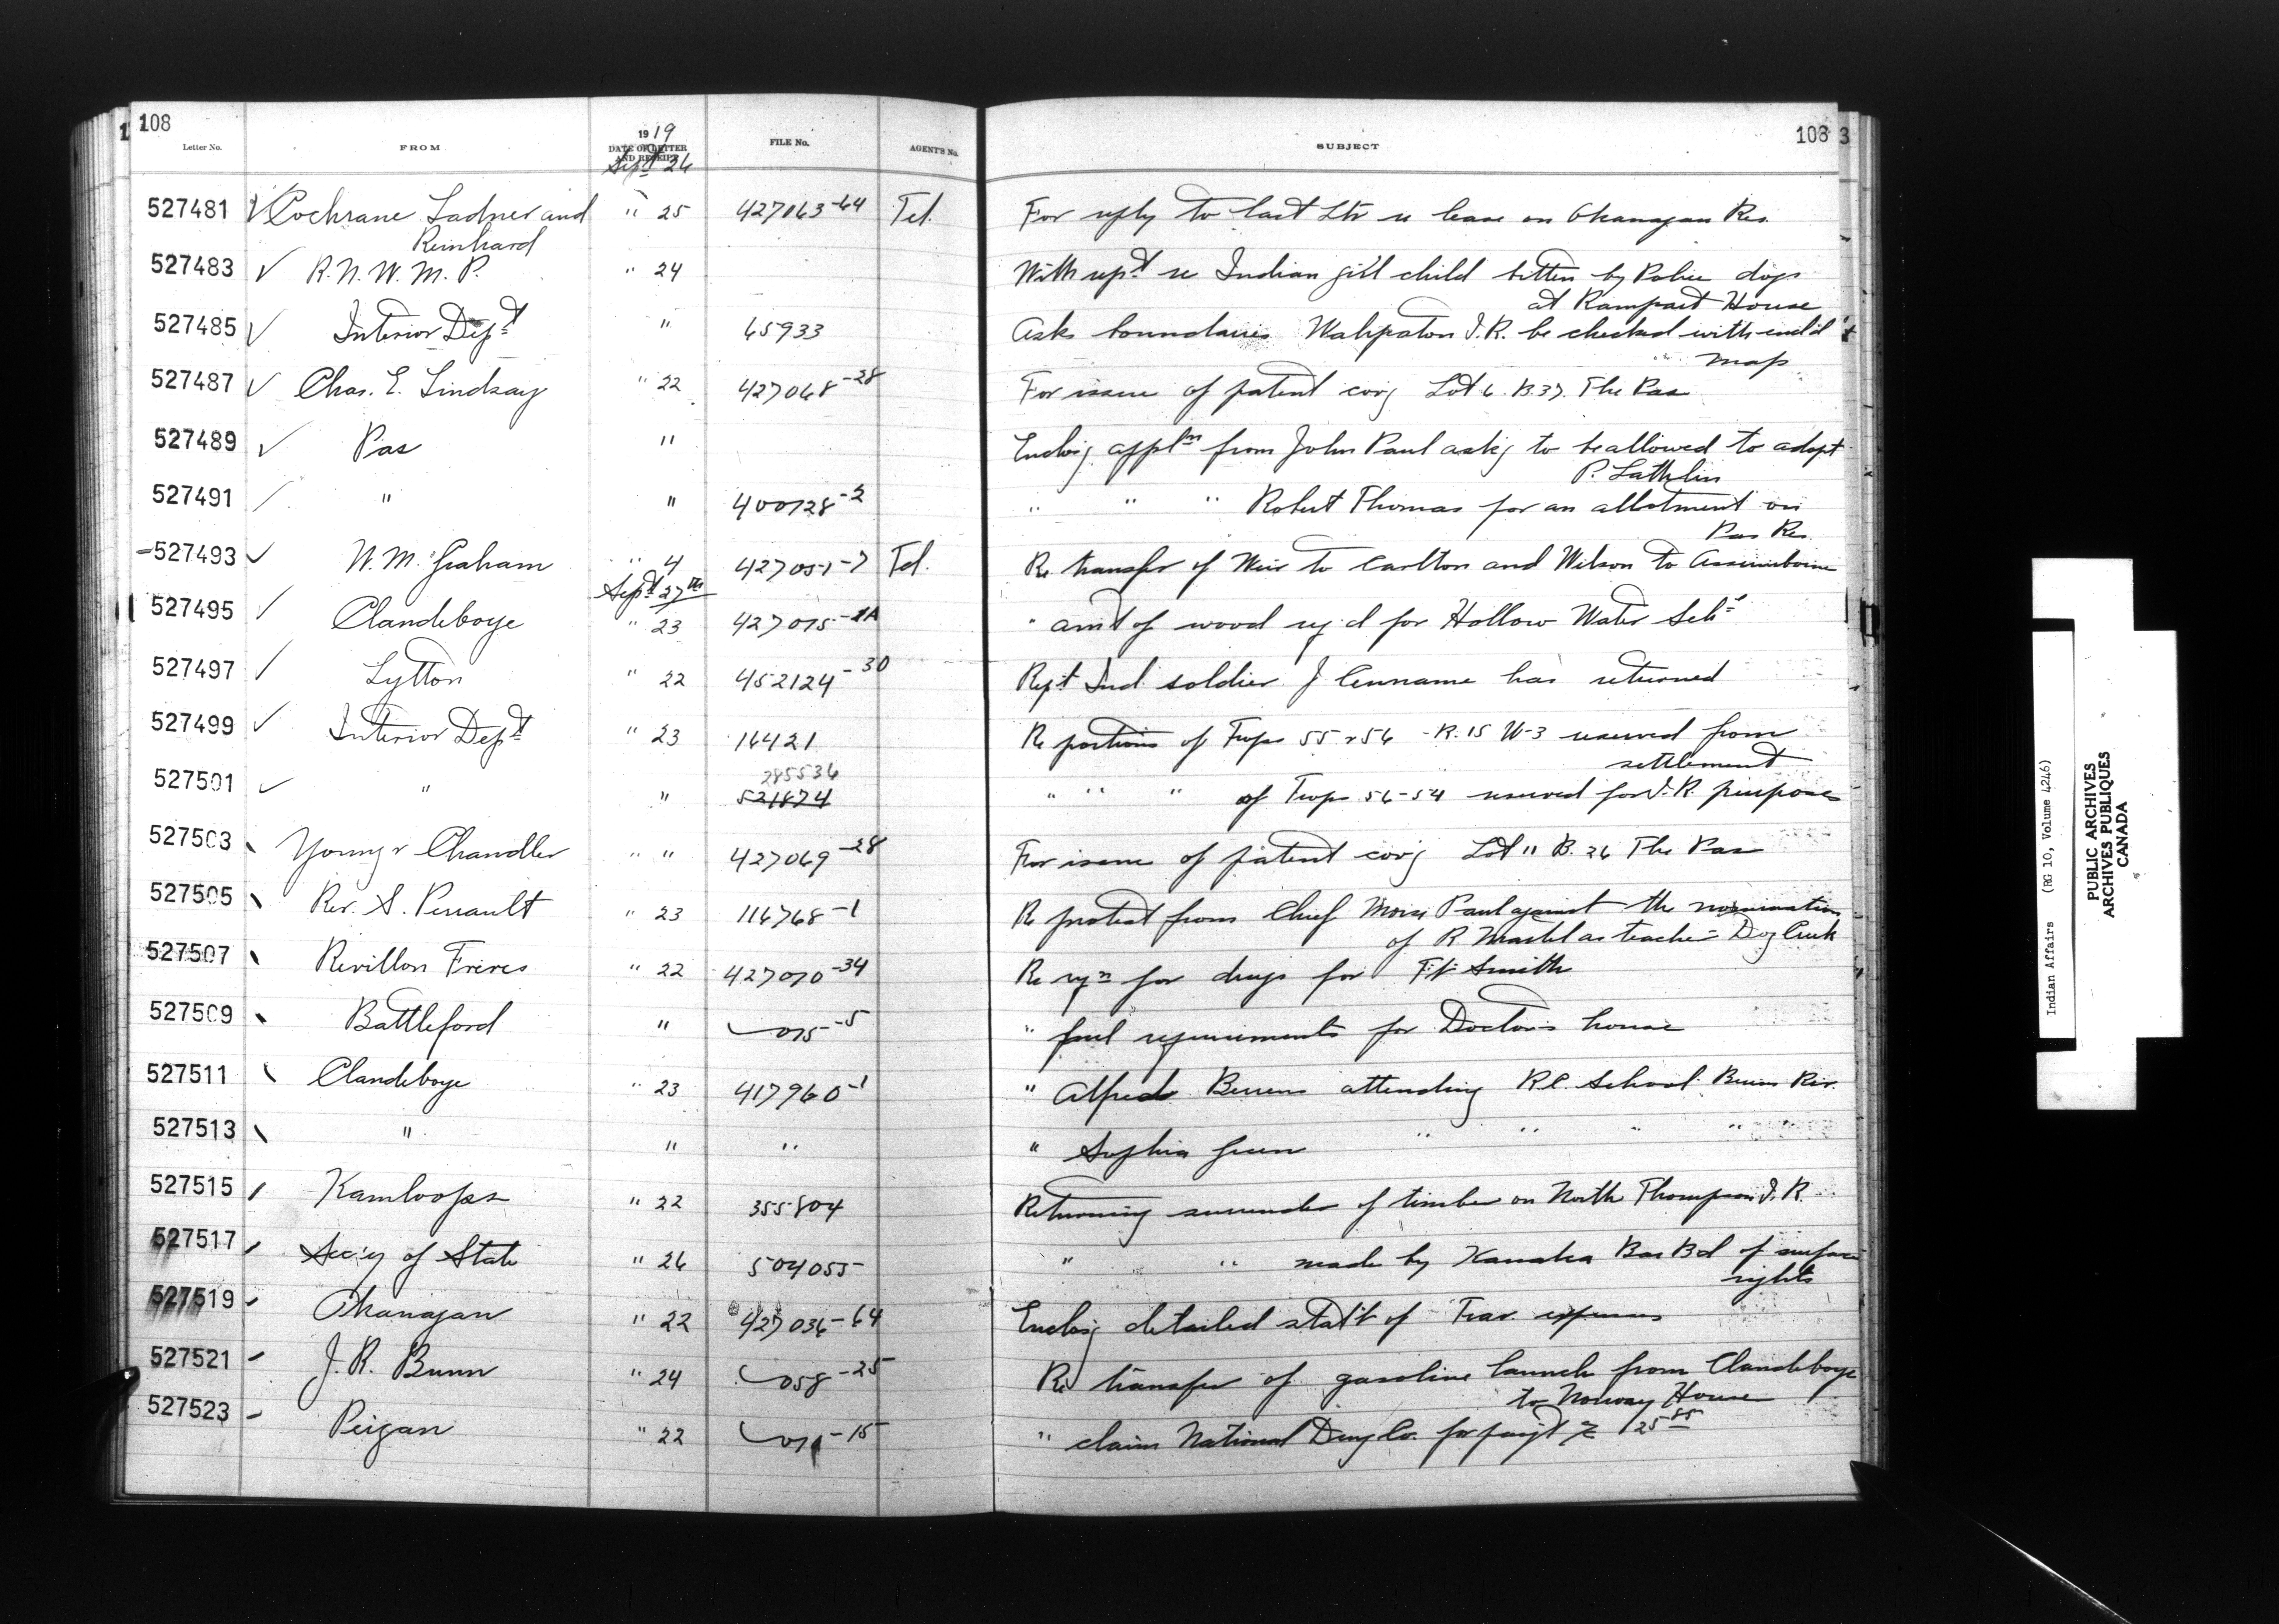 108
Letter No. FROM 1919 DATE OF LETTER AND RECEIPT FILE No. AGENT'S No. SUBJECT 108 3
Sept 26
527481 Cochrane Ladner and " 25 427063-64 Tel. For reply to last Ltr re lease on Okanagan Res.
Reinhard
527483 R.N.W.M.P. " 24 With rept re Indian girl child bitten by Police dogs
at Rampart House
527485 Interior Dept " 65933 Asks boundaries Wahpaton I.R. be checked with encl'd
" map
527487 Chas. E. Lindsay " 22 427068-28 For issue of patent covg Lot 6. B.37. The Pas
527489 Pas " Enclos'g appln from John Paul ask'g to be allowed to adopt
P. Lathlin
527491 " " 400728-2 " " " Robert Thomas for an allotment on
Pas Res.
527493 W.M. Graham " 4 427051-7 Tel. Re transfer of Weir to Carlton and Wilson to Assiniboine
Sept 27th
527495 Clandeboye " 23 427015-1A " amt of wood req'd for Hollow Water Schl
527497 Lytton " 22 452124-30 Rept Ind. soldier J has returned
527499 Interior Dept " 23 16421 Re portions of Twps 55 & 56 - R. 15 W-3 reserved from
settlement
285536
527501 " " 521874 " " " of Twps 56-54 reserved for I.R. purposes
527503 Young & Chandler " " 427069-28 For issue of patent cov'g Lot 11 B. 26 The Pas
527505 Rev. S. Perrault " 23 116768-1 Re protest from Chief Moise Paul against the nomination
of R as teacher - Dog Creek
527507 Revillon Freres " 22 427070-34 Re reqn for drugs for Ft Smith
527509 Battleford " 015-5 " fuel requirements for Doctor's house
527511 Clandeboye " 23 417960-1 " Alfred Berens attending R.C. School Berens Riv.
527513 " " " " Sophia Green " " " " "
527515 Kamloops " 22 355804 Returning surrender of timber on North Thompson I.R.
527517 Sec'y of State " 26 504055 " " made by Kanaka Bar Bd of surface
rights
527519 Okanagan " 22 427036-64 Enclos'g detailed stat't of Trav. expenses
527521 J.R. Bunn " 24 058-25 Re transfer of gasoline launch from Clandeboye
to Norway House
527523 Peigan " 22 -15 " claim National Drug Co. for paym't 125 85
Indian Affairs (RG 10, Volume 4246)
PUBLIC ARCHIVES
ARCHIVES PUBLIQUES
CANADA